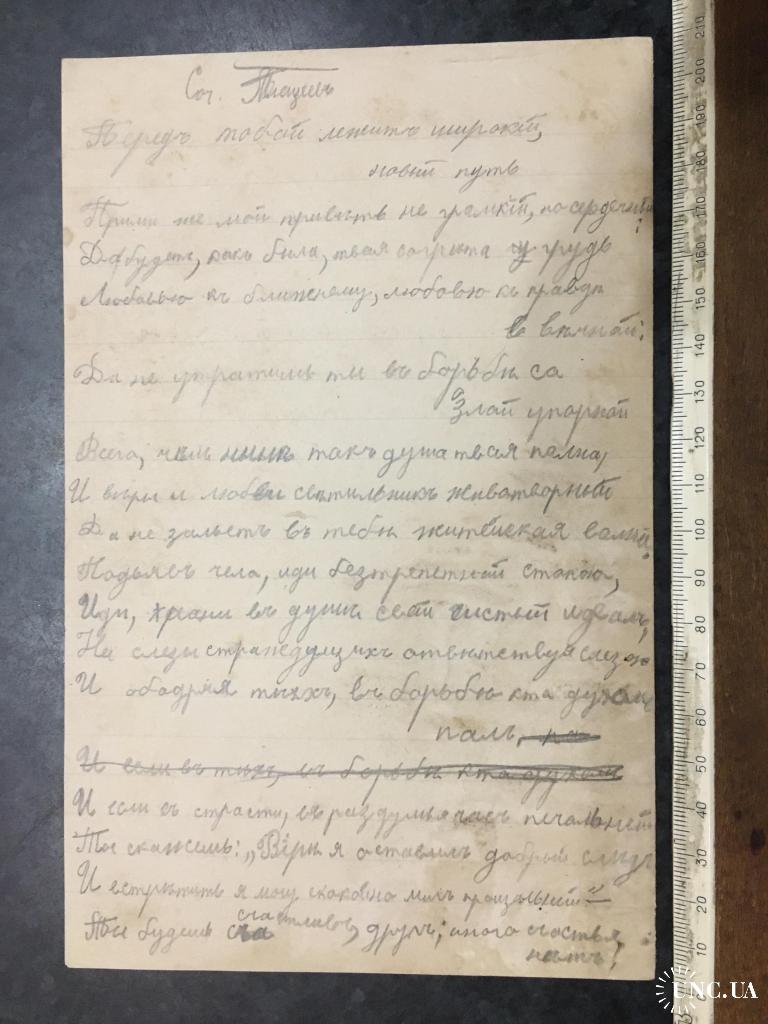 Соч. Плащеевъ
Передъ тобой лежитъ широкій,
новый путь
Прими же мой привѣтъ не громкій, но сердечный:
Да будетъ, какъ была, твоя согрѣта грудь
Любовью къ ближнему, любовью къ правдѣ
вѣчной:
Да не утратишь ты въ борьбѣ со
Злой упорной
Всего, чѣмъ нынѣ такъ душа твоя полна,
И вѣры и любви свѣтильникъ животворный
Да не зальетъ въ тебѣ житейская волна
Подъявъ чело, иди безтрепетной стопою,
Иди, храни въ душѣ свой чистый идеалъ,
На слезы страждущихъ отвѣтствуя слезою
И ободряя тѣхъ, въ борьбѣ кто духомъ
палъ,
И если въ тѣхъ, въ борьбѣ кто духомъ
И если въ старости, въ раздумья часъ печальный
Ты скажешь: „Въ мірѣ я оставилъ добрый слѣдъ
И встрѣтить я могу спокойно мигъ прощальный"—
Ты будешь счастливъ, другъ; иного счастья
нѣтъ!
UNC.UA
10 20 30 40 50 60 70 80 90 100 110 120 130 140 150 160 170 180 190 200 210